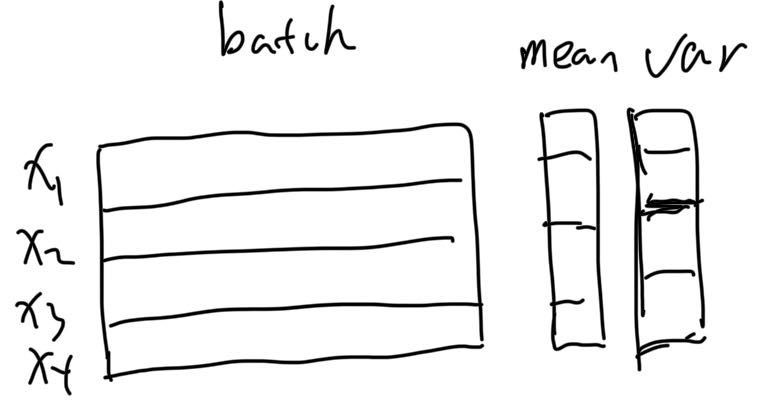 batch
mean var
x1
x2
x3
x4